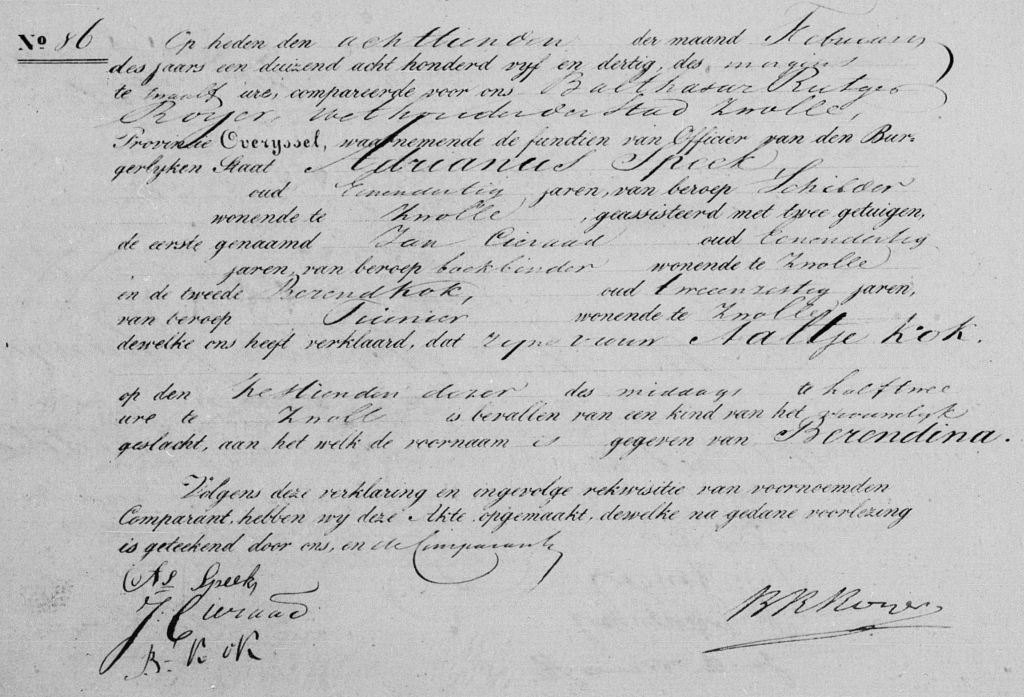 No 86 Op heden den achttienden der maand Februarij
des jaars een duizend acht honderd vyf en dertig, des morgens
te twaalf ure, compareerde voor ons Balthasar Rutger
Royer, Wethouder der Stad Zwolle,
Provincie Overyssel, waarnemende de functien van Officier van den Bur-
gerlyken Staat Adrianus Speek
oud Eenendertig jaren, van beroep Schilder
wonende te Zwolle, geassisteerd met twee getuigen,
de eerste genaamd Jan Cieraad oud Eenendertig
jaren, van beroep boekbinder wonende te Zwolle
en de tweede Berend Kok, oud tweeenzestig jaren,
van beroep wonende te Zwolle
dewelke ons heeft verklaard, dat zyne vrouw Aaltje Kok.
op den zestienden dezer des middags te half twee
ure te Zwolle is bevallen van een kind van het vrouwelyk
geslacht, aan het welk de voornaam is gegeven van Berendina.
Volgens deze verklaring en ingevolge rekwisitie van voornoemden
Comparant, hebben wy deze Akte opgemaakt, dewelke na gedane voorlezing
is geteekend door ons, en de Comparanten
As Speek
J. Cieraad
B. Kok
B R Royer